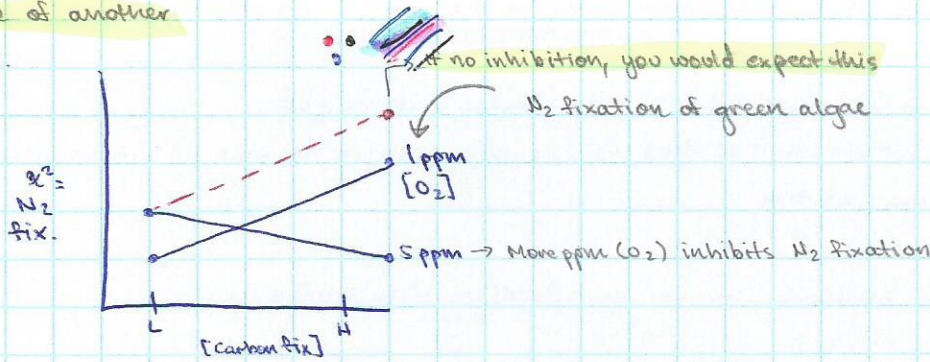 of another
If no inhibition, you would expect this
N₂ fixation of green algae
1 ppm
[O₂]
x̄² =
N₂
fix.
5 ppm → More ppm (O₂) inhibits N₂ fixation
L
H
[Carbon fix]